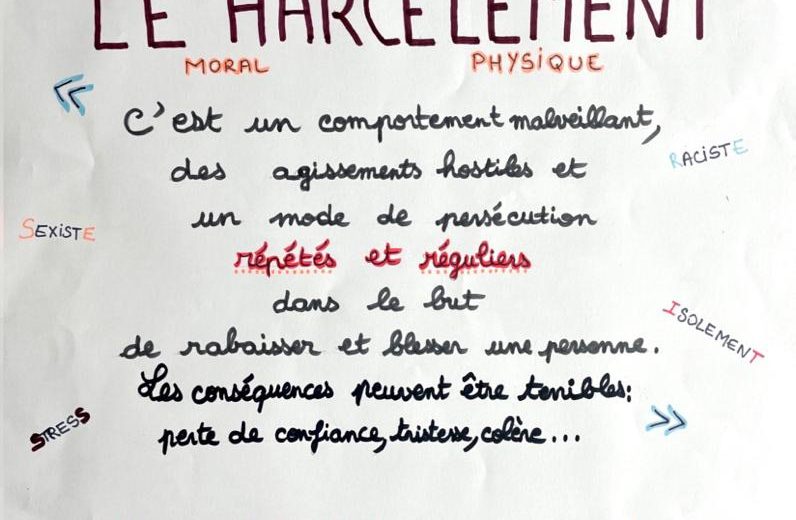 LE HARCÈLEMENT
MORAL PHYSIQUE
«
C'est un comportement malveillant,
RACISTE
des agissements hostiles et
un mode de persécution
SEXISTE
répétés et réguliers
dans le but
ISOLEMENT
de rabaisser et blesser une personne.
Les conséquences peuvent être terribles:
STRESS
perte de confiance, tristesse, colère...
»